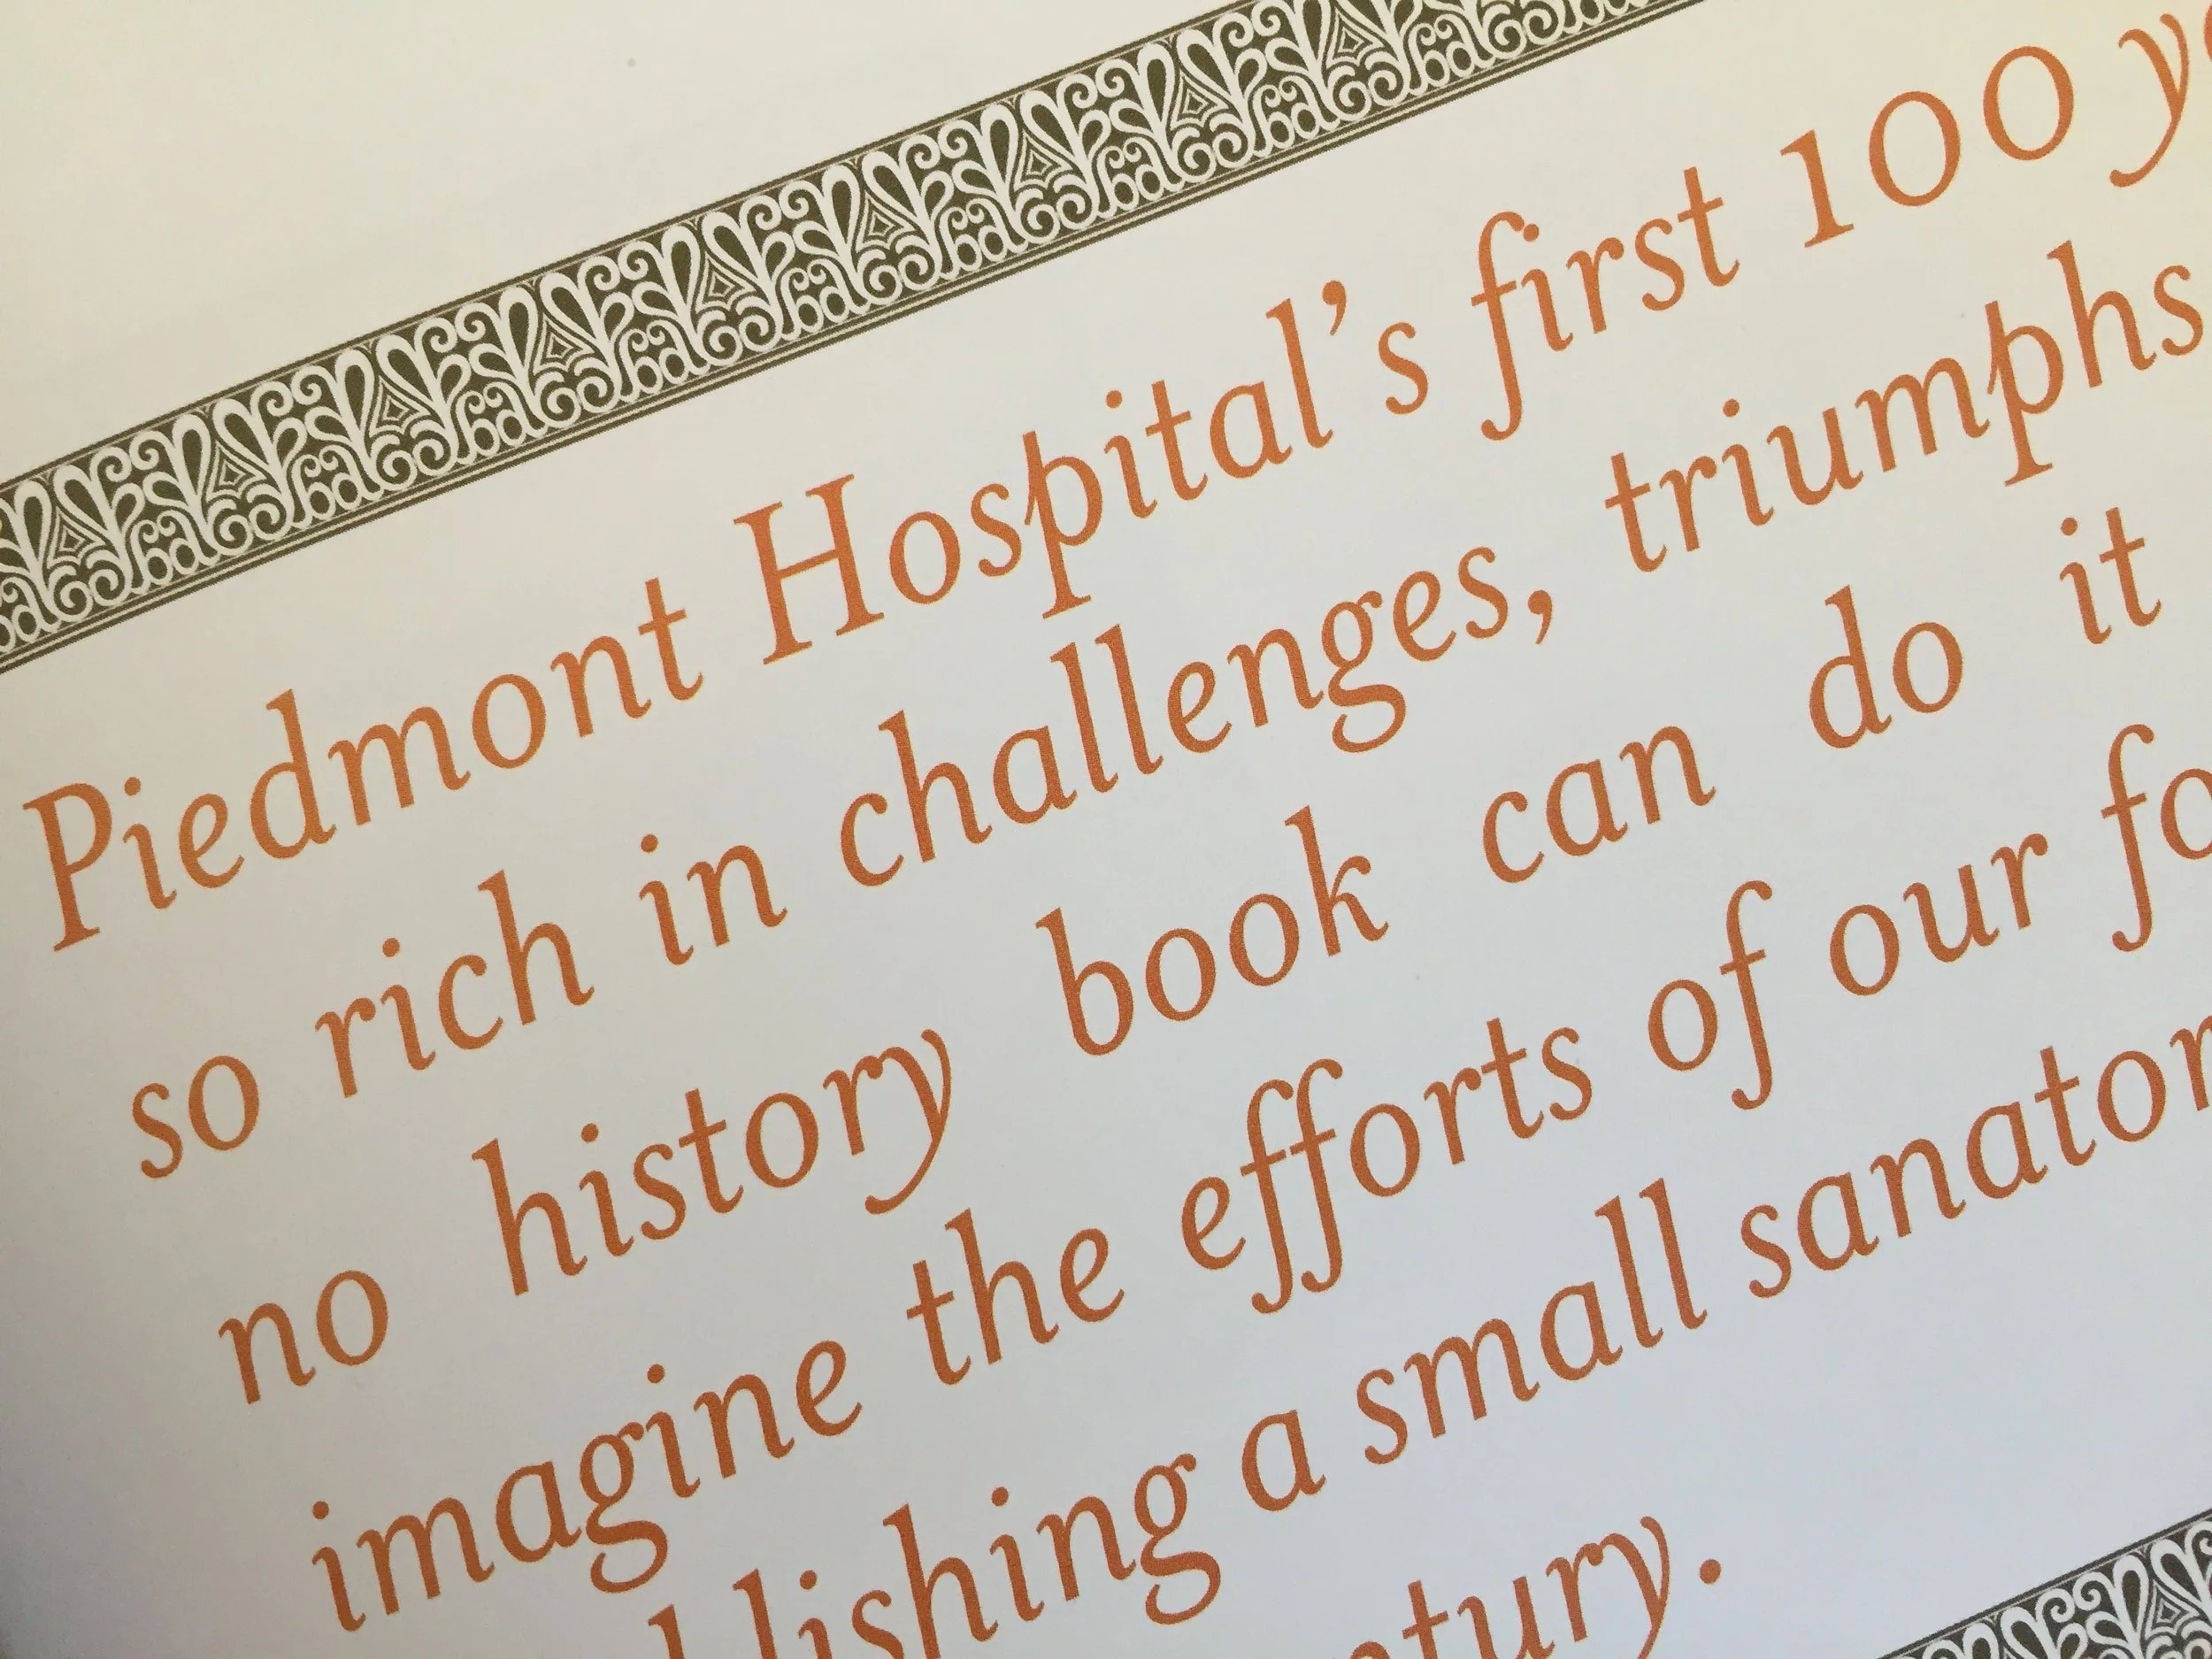 Piedmont Hospital's first 100 ye
so rich in challenges, triumphs
no history book can do it
imagine the efforts of our fo
lishing a small sanator
ntury.